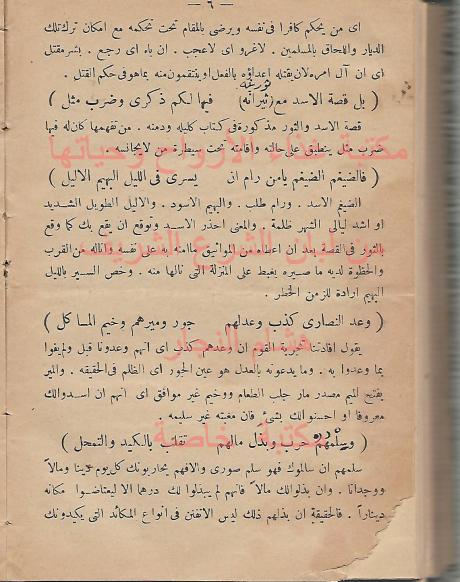 — ٦ —
اى من يحكم كافرا فى نفسه ويرضى بالمقام تحت تحكمه مع امكان ترك تلك
الديار واللحاق بالمسلمين . لاغرو اى لاعجب . ان باء اى رجع . بشر مقتل
اى ان آل امره لان يقتله اعداؤه بالفعل او ينتقمون منه بما هو فى حكم القتل .
( بل قصة الاسد مع (ثيرانه) فيها لكم ذكرى وضرب مثل )
قصة الاسد والثور مذكورة فى كتاب كليله ودمنه . من تفهمها كان له فيها
ضرب مثل ينطبق على حالته واقامته تحت سيطرة من لا يجانسه .
( فالضيغم الضيغم يامن رام ان يسرى فى الليل البهيم الاليل )
الضيغم الاسد . ورام طلب . والبهيم الاسود . والاليل الطويل الشديد
او اشد ليالى الشهر ظلمة . والمعنى احذر الاسد وتوقع ان يقع بك كما وقع
بالثور فى القصة بعد ان اعطاه من المواثيق ما امنه به على نفسه واناله من القرب
والحظوة لديه ما صيره يغبط على المنزلة التى نالها منه . وخص السير بالليل
البهيم ارادة للزمن الخطر .
( وعد النصارى كذب وعدلهم جور وميرهم وخيم المأكل )
يقول افادتنا تجربة القوم ان وعدهم كذب اى انهم وعدونا قبل ولم يفوا
بما وعدوا به . وما يدعونه بالعدل هو عين الجور اى الظلم فى الحقيقه . والمير
بفتح الميم مصدر مار جلب الطعام ووخيم غير موافق اى انهم ان اسدوا لك
معروفا او احسنوا لك بشئ فان مغبته غير سليمه .
( وسلمهم حرب وبذل مالهم تقلب بالكيد والتمحل )
سلمهم ان سالموك فهو سلم صورى والا فهم يحاربونك كل يوم دينا ومالاً
ووجدانا . وان بذلوا لك مالاً فانهم لم يبذلوا لك درهما الا ليعتاضوا مكانه
ديناراً . فالحقيقة ان بذلهم ذلك ليس الا تفنن فى انواع المكائد التى يكيدونك
مكتبة
لسان الشرع الشريف
هشام النجار
مكتبة خاصة